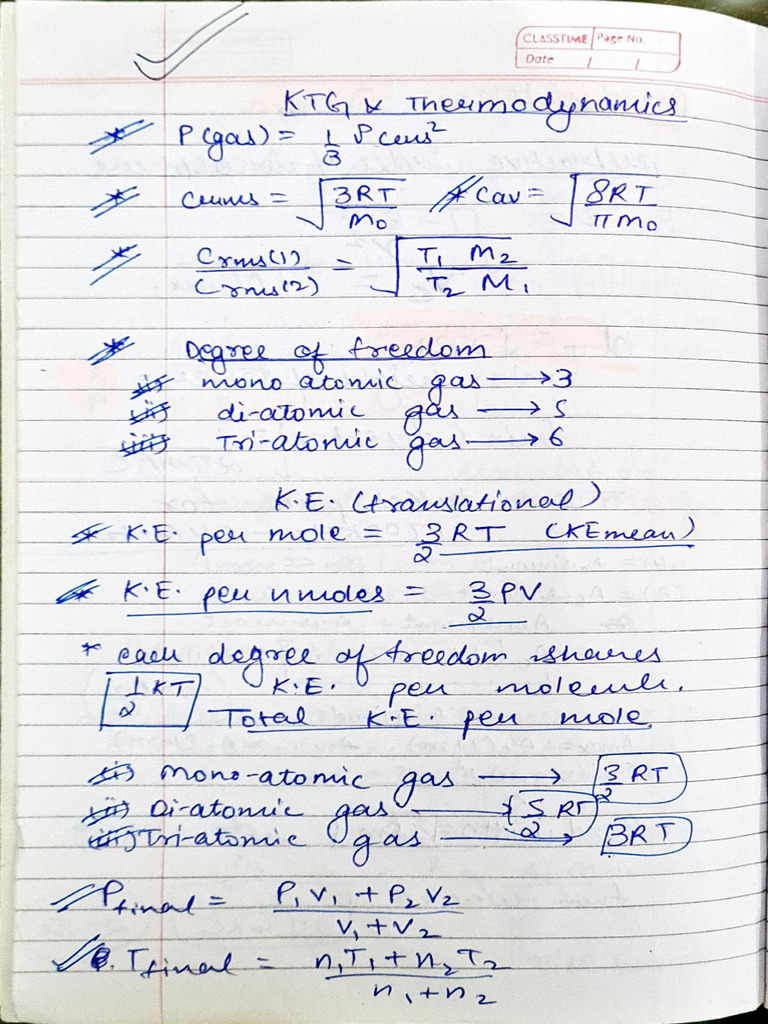 CLASSTIME Page No.
Date / /
KTG & Thermodynamics
* P(gas) = 1/3 ρ Crms²
* Crms = √(3RT/M₀) * Cav = √(8RT/πM₀)
* Crms(1)/Crms(2) = √(T₁ M₂/T₂ M₁)
* Degree of freedom
i) mono atomic gas → 3
ii) di-atomic gas → 5
iii) Tri-atomic gas → 6
K.E. (translational)
* K.E. per mole = 3/2 RT (KE mean)
* K.E. per n moles = 3/2 PV
* each degree of freedom shares
1/2 KT K.E. per molecule.
Total K.E. per mole.
i) Mono-atomic gas → 3/2 RT
ii) Di-atomic gas → 5/2 RT
iii) Tri-atomic gas → 3RT
P final = P₁V₁ + P₂V₂/V₁ + V₂
T final = n₁T₁ + n₂T₂/n₁ + n₂